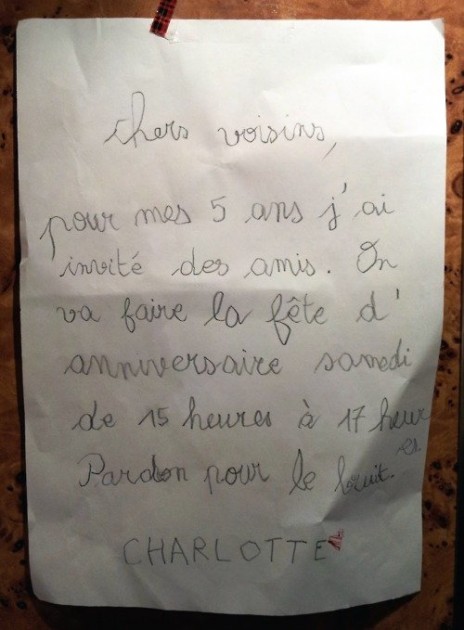 chers voisins,
pour mes 5 ans j'ai
invité des amis. On
va faire la fête d'
anniversaire samedi
de 15 heures à 17 heures
Pardon pour le bruit.
CHARLOTTE